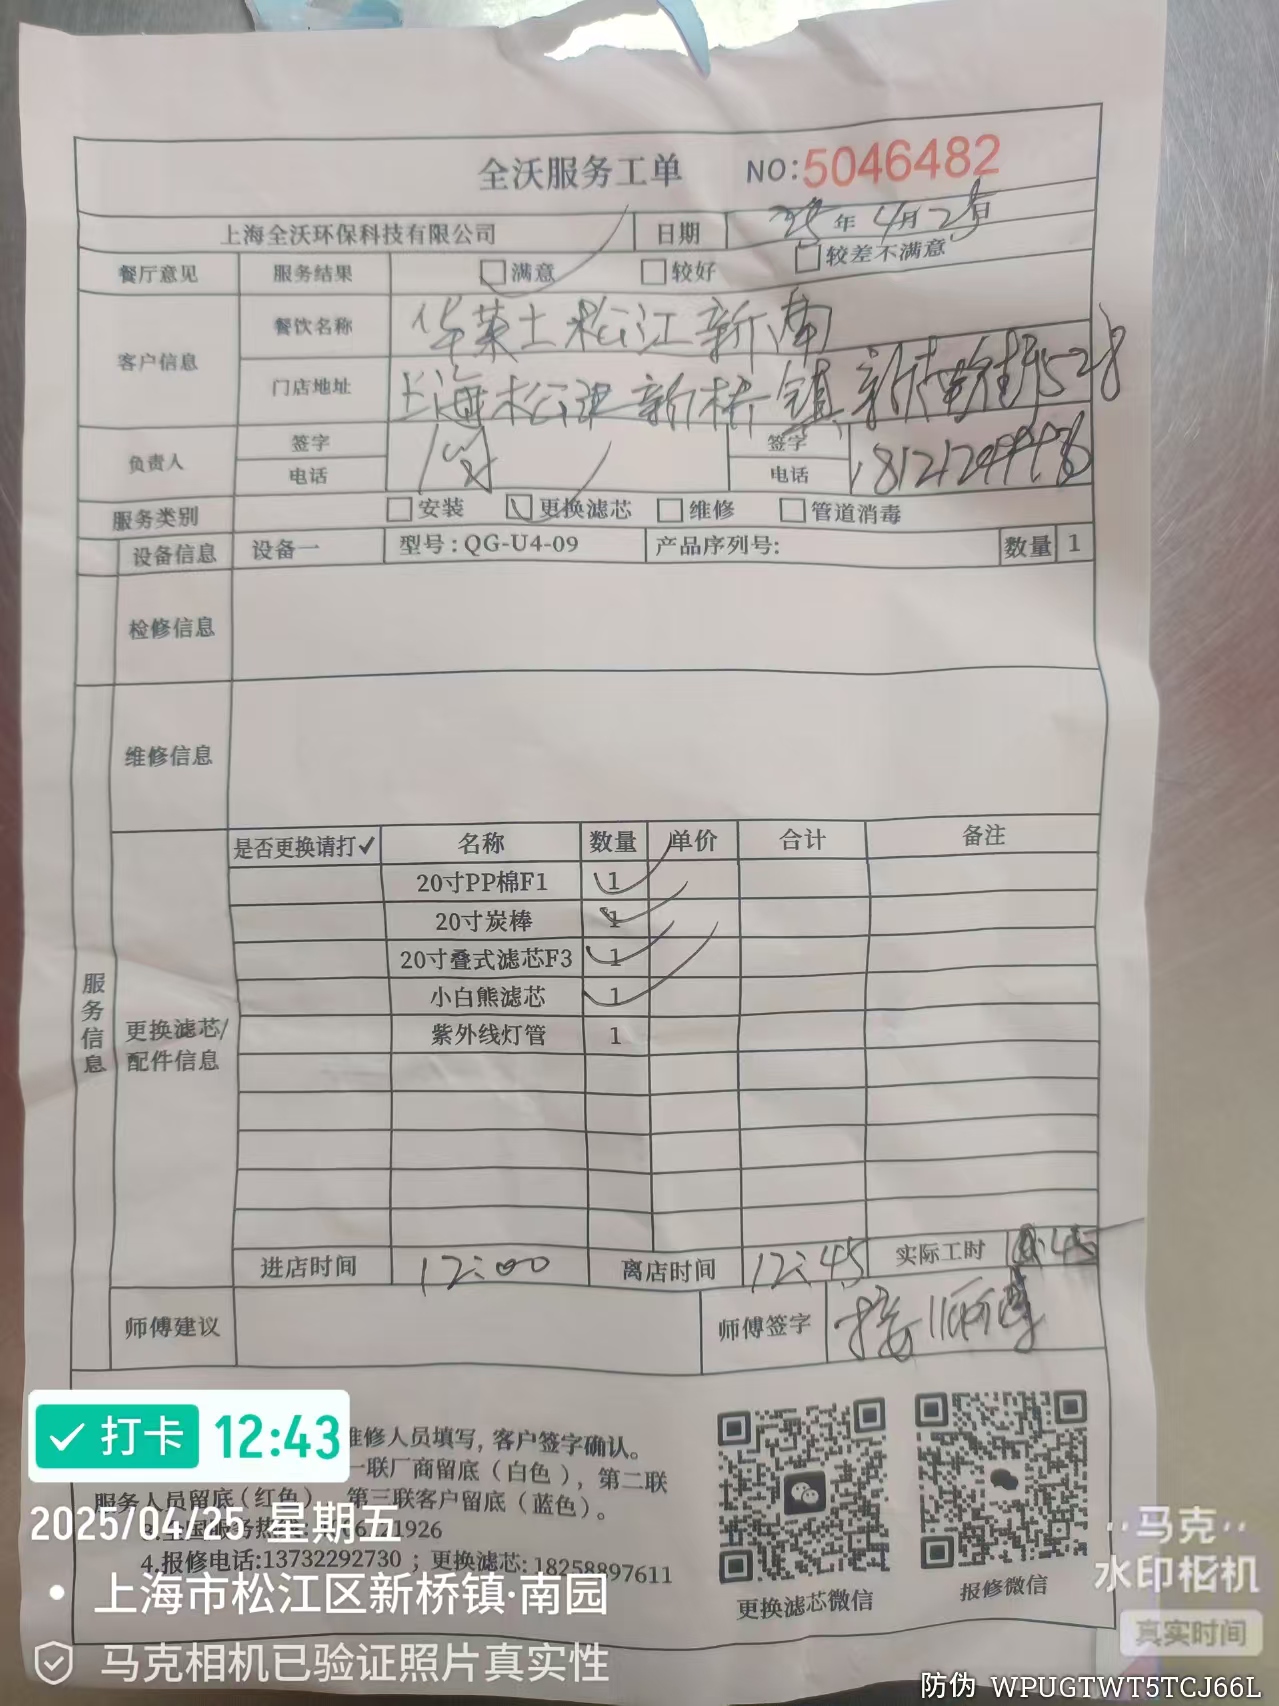 全沃服务工单 NO:5046482
上海全沃环保科技有限公司 日期 25年4月25日
餐厅意见 服务结果 满意 较好 较差不满意
客户信息 餐饮名称 华莱士松江新南
门店地址 上海松江新桥镇新南街528
负责人 签字 签字
电话 电话
服务类别 安装 更换滤芯 维修 管道消毒
设备信息 设备一 型号:QG-U4-09 产品序列号: 数量 1
检修信息
维修信息
是否更换请打✓ 名称 数量 单价 合计 备注
20寸PP棉F1 1
20寸炭棒 1
20寸叠式滤芯F3 1
小白熊滤芯 1
紫外线灯管 1
服务信息
更换滤芯/
配件信息
进店时间 12:00 离店时间 12:45 实际工时
师傅建议 师傅签字
维修人员填写,客户签字确认。
一联厂商留底(白色),第二联
服务人员留底(红色),第三联客户留底(蓝色)。
4.报修电话:13732292730;更换滤芯:18258897611
更换滤芯微信 报修微信
打卡 12:43
2025/04/25 星期五
上海市松江区新桥镇·南园
马克相机已验证照片真实性
马克
水印相机
真实时间
防伪 WPUGTWT5TCJ66L